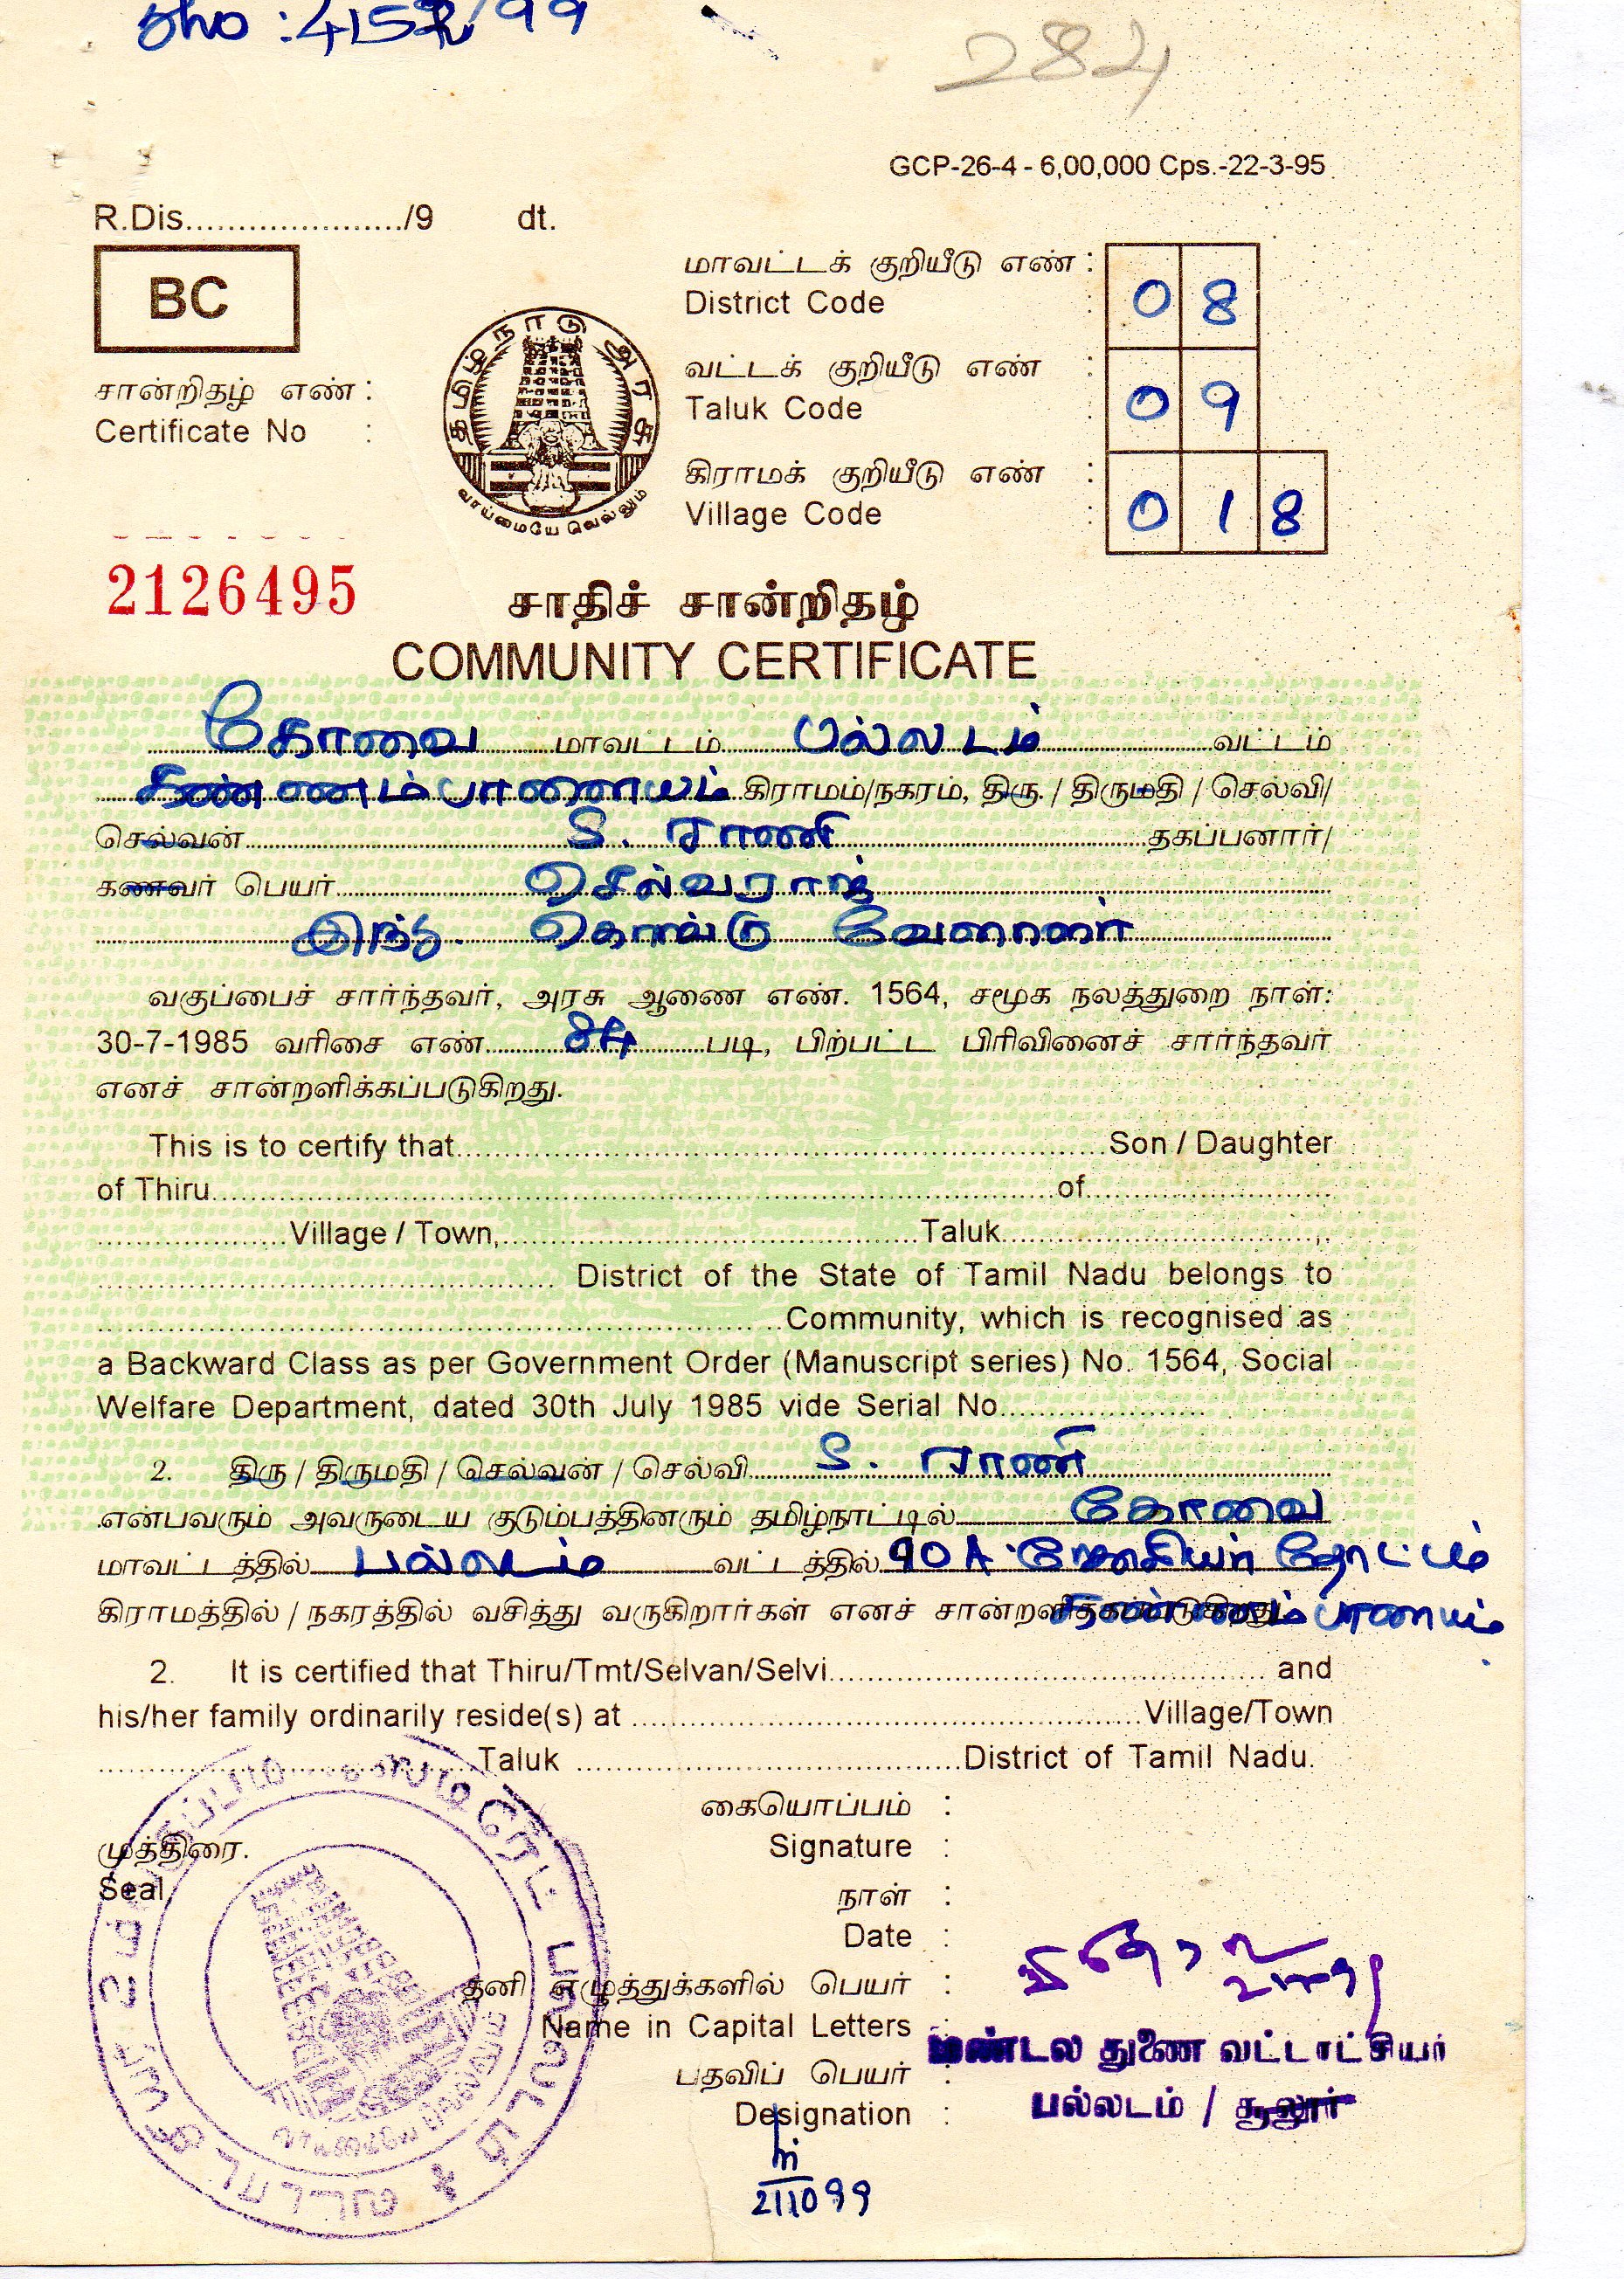 284
GCP-26-4 - 6,00,000 Cps.-22-3-95
R.Dis....................../9 dt.
BC
மாவட்டக் குறியீடு எண் :
District Code : 0 8
சான்றிதழ் எண் :
Certificate No :
தமிழ்நாடு அரசு
வாய்மையே வெல்லும்
வட்டக் குறியீடு எண் :
Taluk Code : 0 9
கிராமக் குறியீடு எண் :
Village Code : 0 1 8
2126495
சாதிச் சான்றிதழ்
COMMUNITY CERTIFICATE
கோவை மாவட்டம் பல்லடம் வட்டம்
கிராமம்/நகரம், திரு. / திருமதி / செல்வி/
செல்வன் S. ராணி தகப்பனார்/
கணவர் பெயர் செல்வராஜ்
இந்து. கொங்கு வேளாளர்
வகுப்பைச் சார்ந்தவர், அரசு ஆணை எண். 1564, சமூக நலத்துறை நாள்:
30-7-1985 வரிசை எண் படி, பிற்பட்ட பிரிவினைச் சார்ந்தவர்
எனச் சான்றளிக்கப்படுகிறது.
This is to certify that Son / Daughter
of Thiru of
Village / Town, Taluk
District of the State of Tamil Nadu belongs to
Community, which is recognised as
a Backward Class as per Government Order (Manuscript series) No. 1564, Social
Welfare Department, dated 30th July 1985 vide Serial No.
2. திரு / திருமதி / செல்வன் / செல்வி S. ராணி
என்பவரும் அவருடைய குடும்பத்தினரும் தமிழ்நாட்டில் கோவை
மாவட்டத்தில் பல்லடம் வட்டத்தில் தோட்டம்
கிராமத்தில் / நகரத்தில் வசித்து வருகிறார்கள் எனச் சான்றளிக்கப்படுகிறது
2. It is certified that Thiru/Tmt/Selvan/Selvi and
his/her family ordinarily reside(s) at Village/Town
Taluk District of Tamil Nadu.
கையொப்பம் :
முத்திரை. Signature :
Seal
நாள் :
Date :
தனி எழுத்துக்களில் பெயர் :
Name in Capital Letters :
மண்டல துணை வட்டாட்சியர்
பதவிப் பெயர் :
Designation : பல்லடம் / சூலூர்